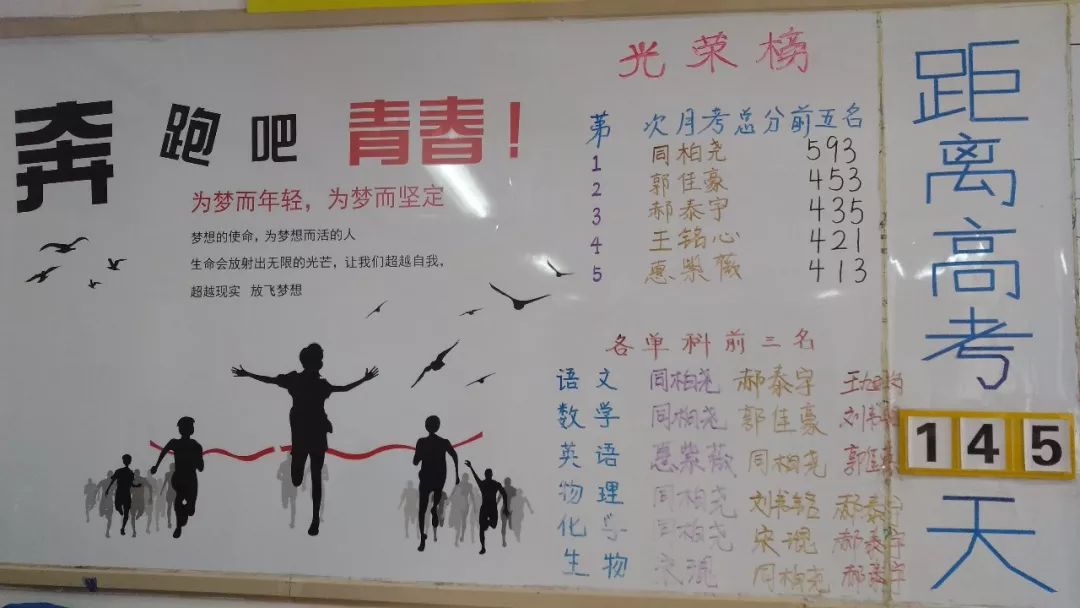 奔跑吧青春！
为梦而年轻，为梦而坚定
梦想的使命，为梦想而活的人
生命会放射出无限的光芒，让我们超越自我，
超越现实 放飞梦想
光荣榜
第 次月考总分前五名
1 同柏尧 593
2 郭佳豪 453
3 郝泰宇 435
4 王铭心 421
5 惠紫薇 413
各单科前三名
语文 同柏尧 郝泰宇
数学 同柏尧 郭佳豪
英语 惠紫薇 同柏尧 郭佳豪
物理 同柏尧 郝泰宇
化学 同柏尧 宋混 郝泰宇
生物 同柏尧 郝泰宇
距离高考
145
天